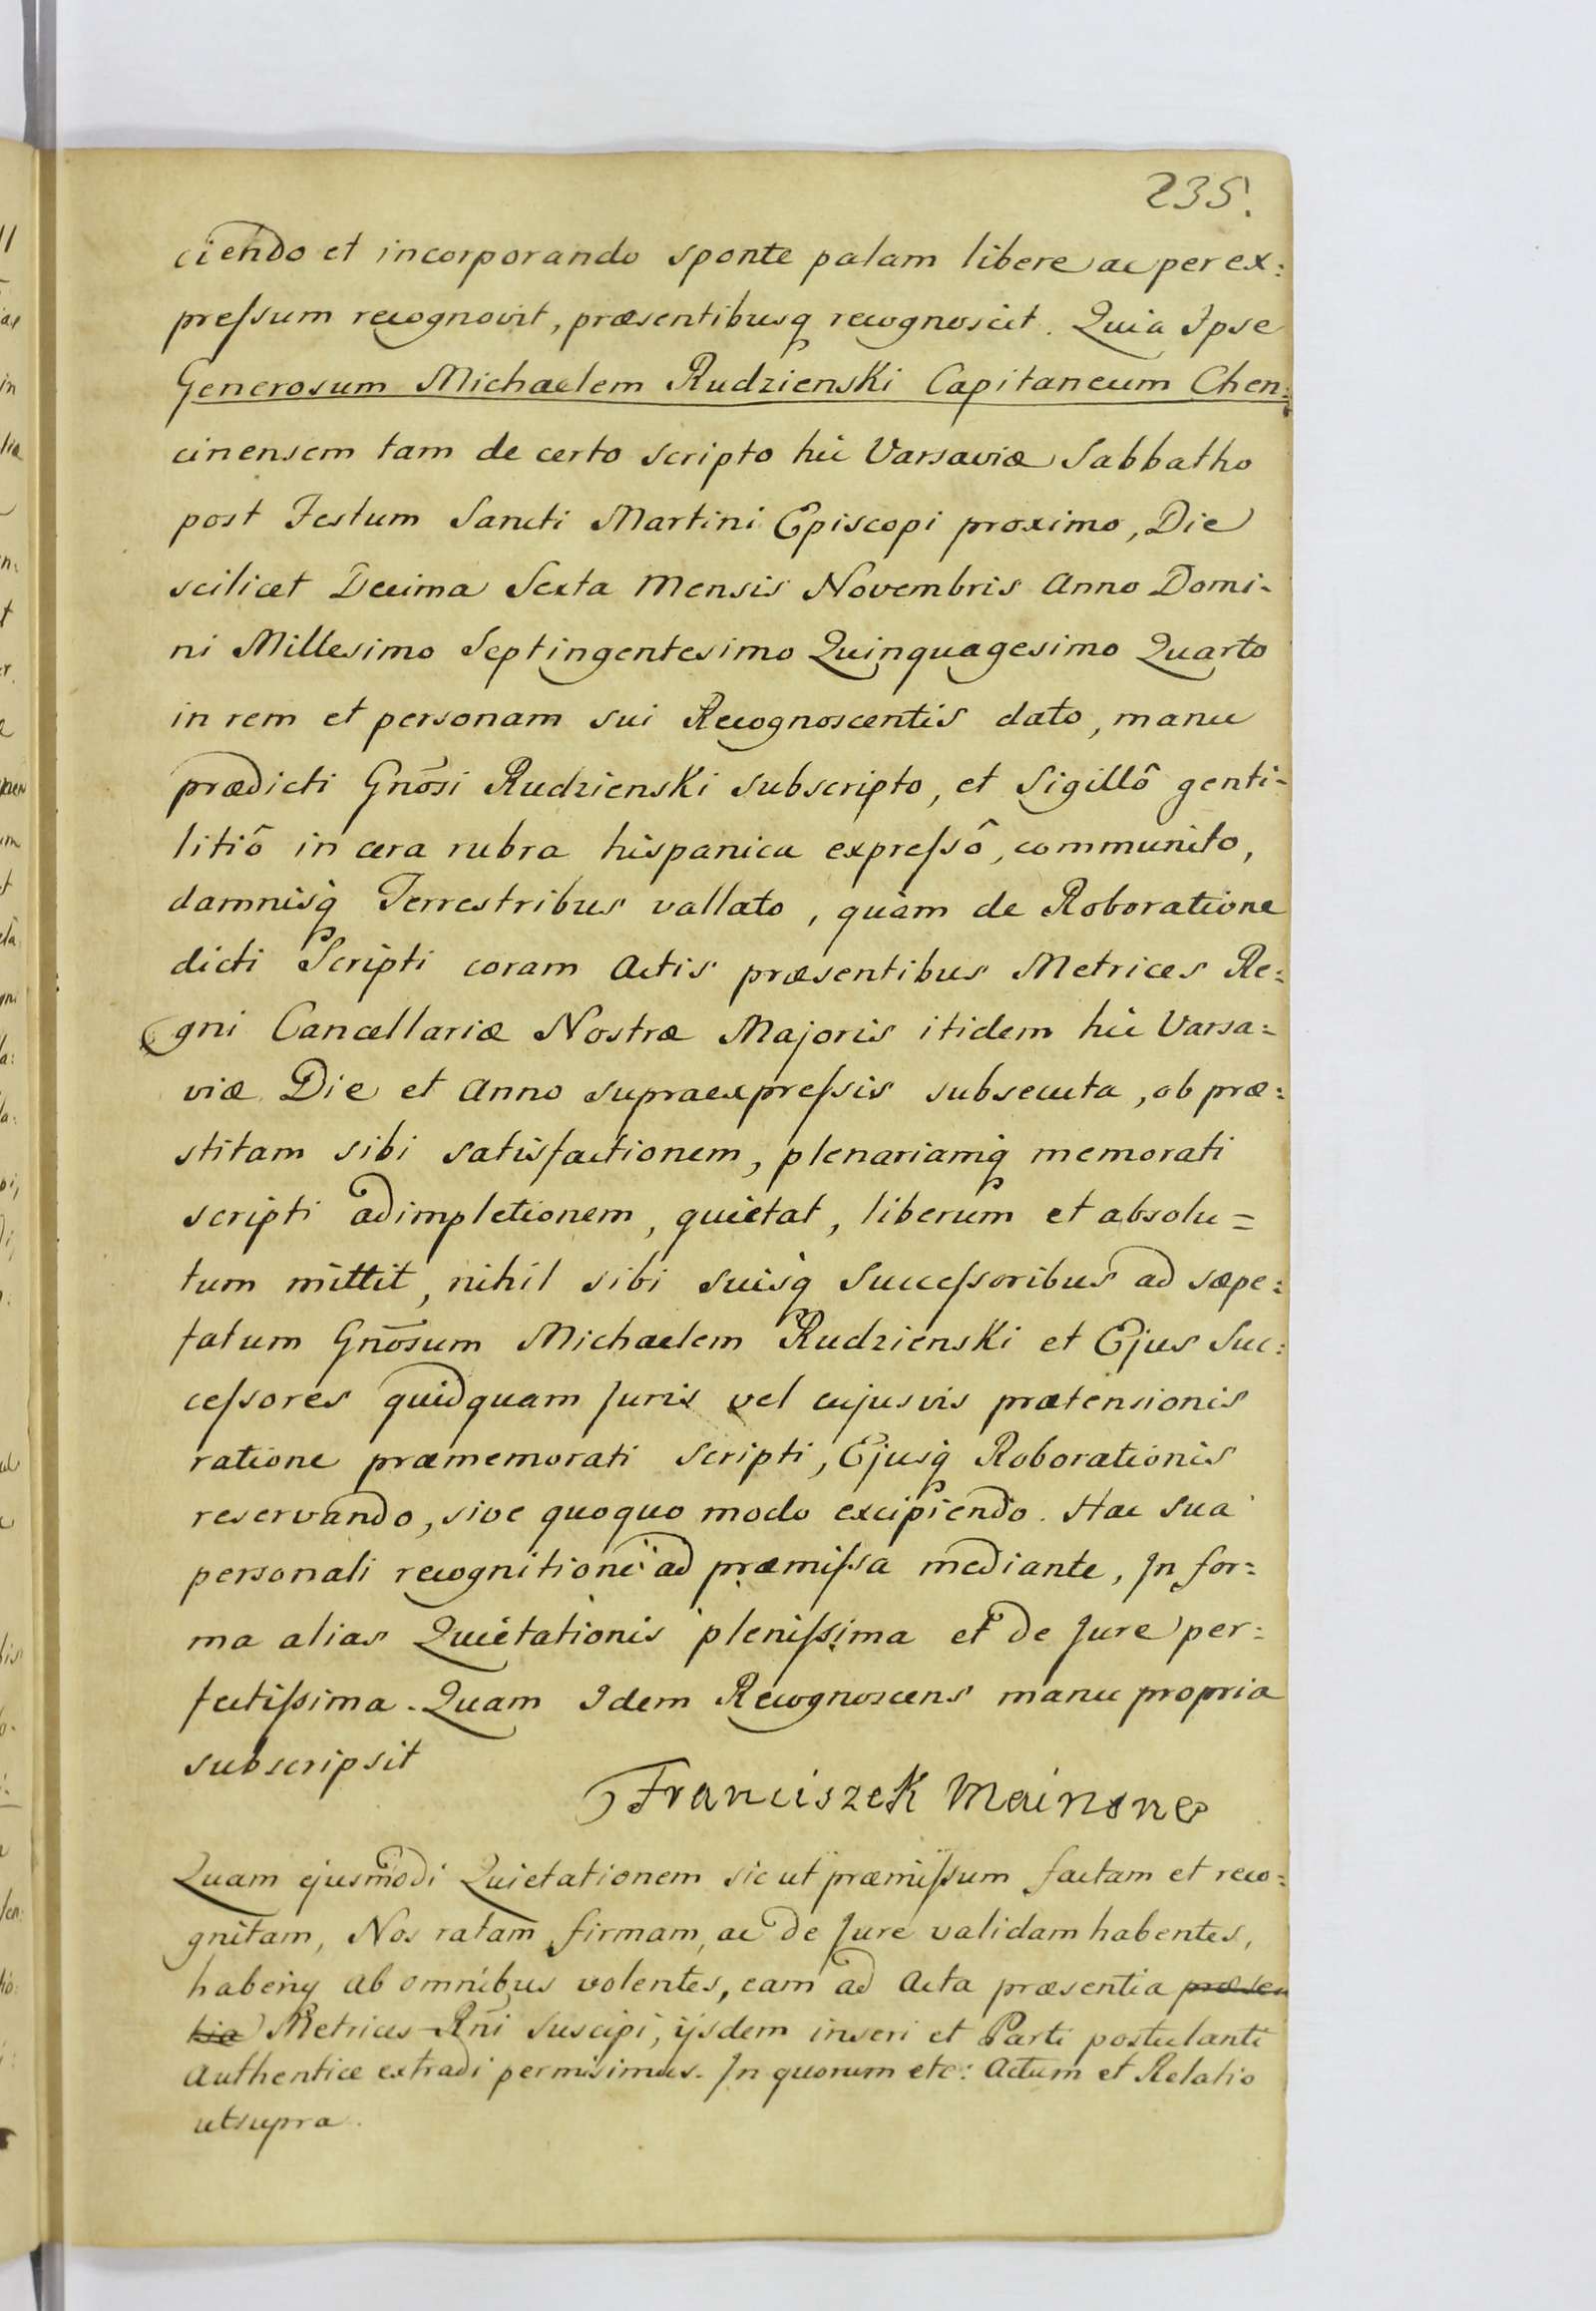 235.
ciendo et incorporando sponte palam libere ac per ex:
preſsum recognovit, præsentibusq recognoscit. Quia Ipse
Generosum Michaelem Rudzienski Capitaneum Chen:
cinensem tam de certo scripto hic Varsaviæ Sabbatho
post Festum Sancti Martini Episcopi proximo, Die
scilicet Decima Sexta Mensis Novembris Anno Domi-
ni Millesimo Septingentesimo Quinquagesimo Quarto
in rem et personam sui Recognoscentis dato, manu
prædicti Gnõsi Rudzienski subscripto, et Sigillô genti-
litiô in cera rubra hispanica expreſsô, communito,
damnisq Terrestribus vallato, quàm de Roboratione
dicti Scripti coram Actis præsentibus Metrices Re:
gni Cancellariæ Nostræ Majoris itidem hic Varsa:
viæ Die et Anno supraexpreſsis subsecuta, ob præ:
stitam sibi satisfactionem, plenariamq memorati
scripti adimpletionem, quietat, liberum et absolu=
tum mittit, nihil sibi suisq Succeſsoribus ad sæpe:
fatum Gnõsum Michaelem Rudzienski et Ejus Suc:
ceſsores quidquam Juris vel cujusvis prætensionis
ratione præmemorati Scripti, Ejusq Roborationis
reservando, sive quoquo modo excipiendo. Hac sua
personali recognitione ad præmiſsa mediante, In for:
ma alias Quietationis pleniſsima et de Jure per:
fectiſsima. Quam Idem Recognoscens manu propria
subscripsit
Franciszek Mainone
Quam ejusmodi Quietationem sic ut præmiſsum factam et reco:
gnitam, Nos ratam firmam, ac de Jure validam habentes,
haberiq ab omnibus volentes, eam ad Acta præsentia præsen
tia Metrices Rñi Suscipi, ijsdem inseri et Parti postulanti
Authentice extradi permisimus. In quorum etc: Actum et Relatio
utsupra.